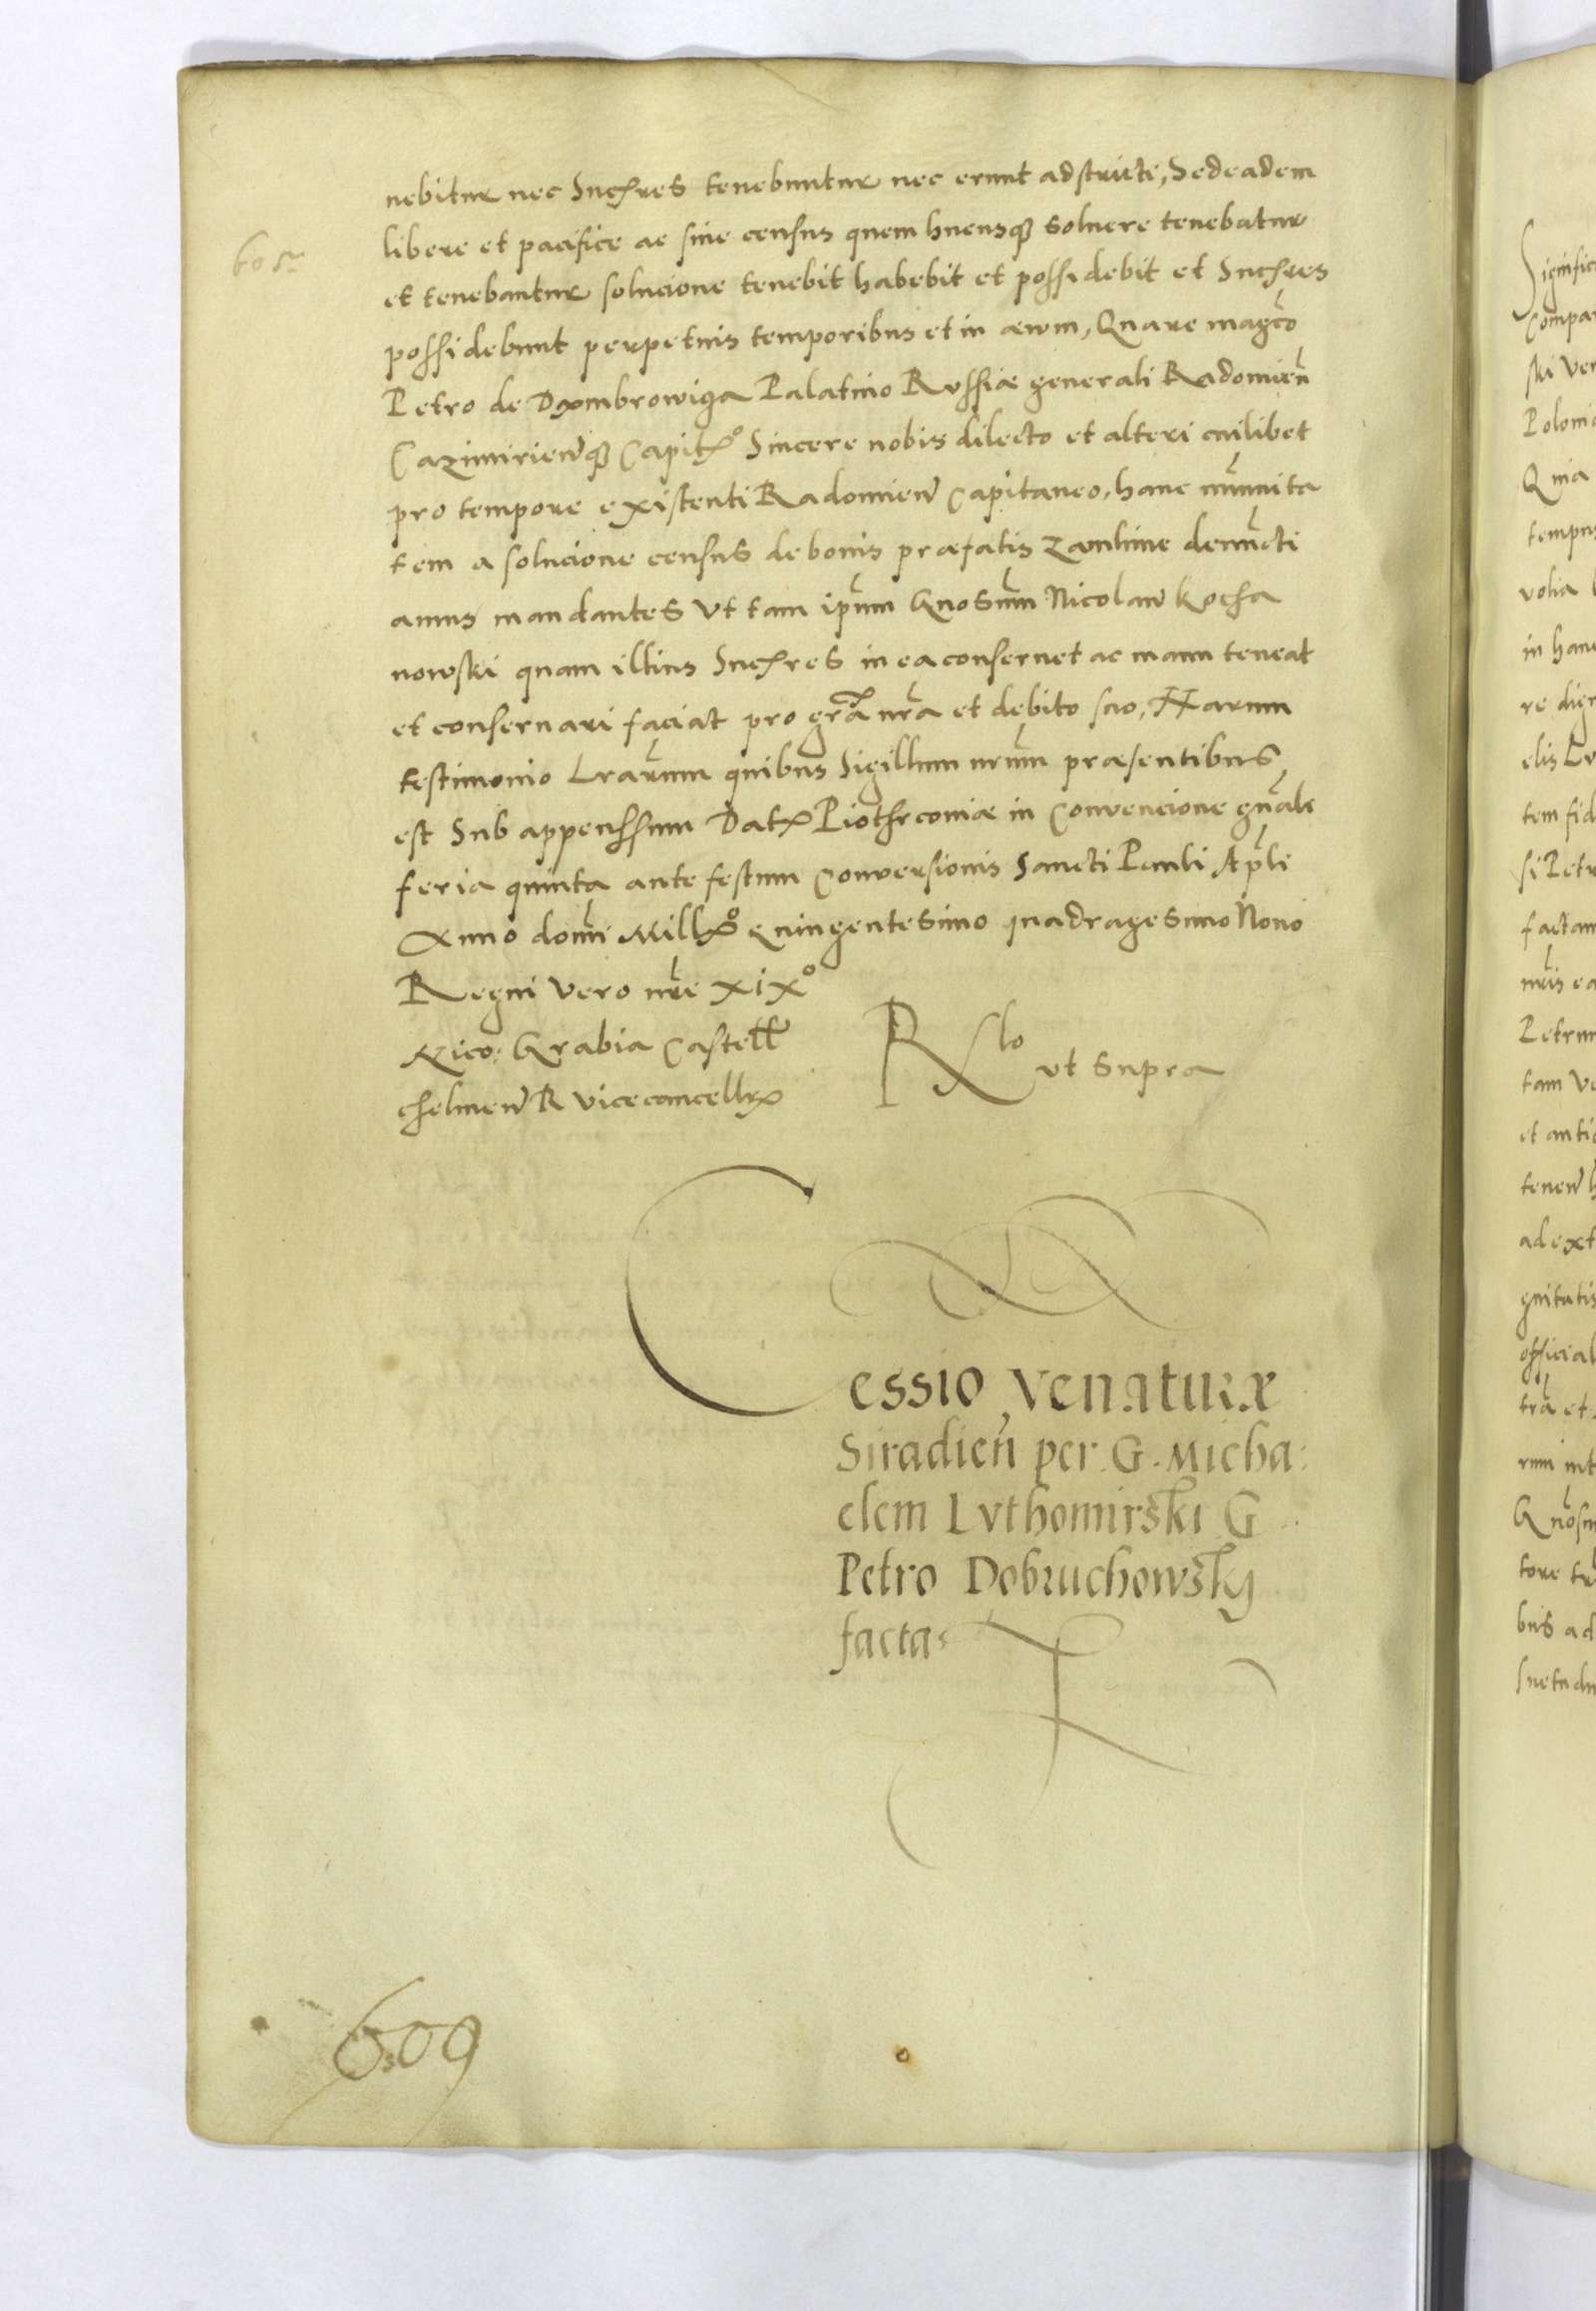 nebitur nec Succres tenebuntur nec erunt adstricti, Sed eadem
libere et pacifice ac sine census quem hucusq soluere tenebatur
et tenebantur solucione tenebit habebit et possidebit et Succres
possidebunt perpetuis temporibus et in aevum, Quare magco
Petro de Dambrowiga Palatino Russiæ generali Radomien
Cazimirienq Capit° Sincere nobis dilecto et alteri cuilibet
pro tempore existenti Radomien Capitaneo, hanc immunita
tem a solucione census de bonis præfatis denuncti
amus mandantes Vt tam ipum Gnosum Nicolau Kocha
nowski quam illius Succres in ea conseruet ac manu teneat
et conseruari faciat pro gra nra et debito suo, Harum
testimonio Lrarum quibus Sigillum nrum præsentibus
est Sub appenssum Dat Piothrconiæ in Convencione gnali
feria quinta ante festum Conversionis Sancti Pauli Apli
Anno domi Mill° Quingentesimo quadragesimo Nono
Regni vero nri xix°
Nico: Grabia Castell
chelmen R vicecancell
R lo ut supra
60
Cessio venaturæ
Siradien per G. Micha:
elem Lvthomirski G
Petro Dobruchowsky
facta
609
Signific
Compar
ski Ven
Poloniæ
Quia
tempus
volia
in hanc
re dign
elis Lv
tem fid
si Petr
factam
nris ea
Petrum
tam Ve
et anti
tenen h
ad ext
gnitatis
official
tra et
rum int
Gnosu
tore tr
bus ad
suetudi